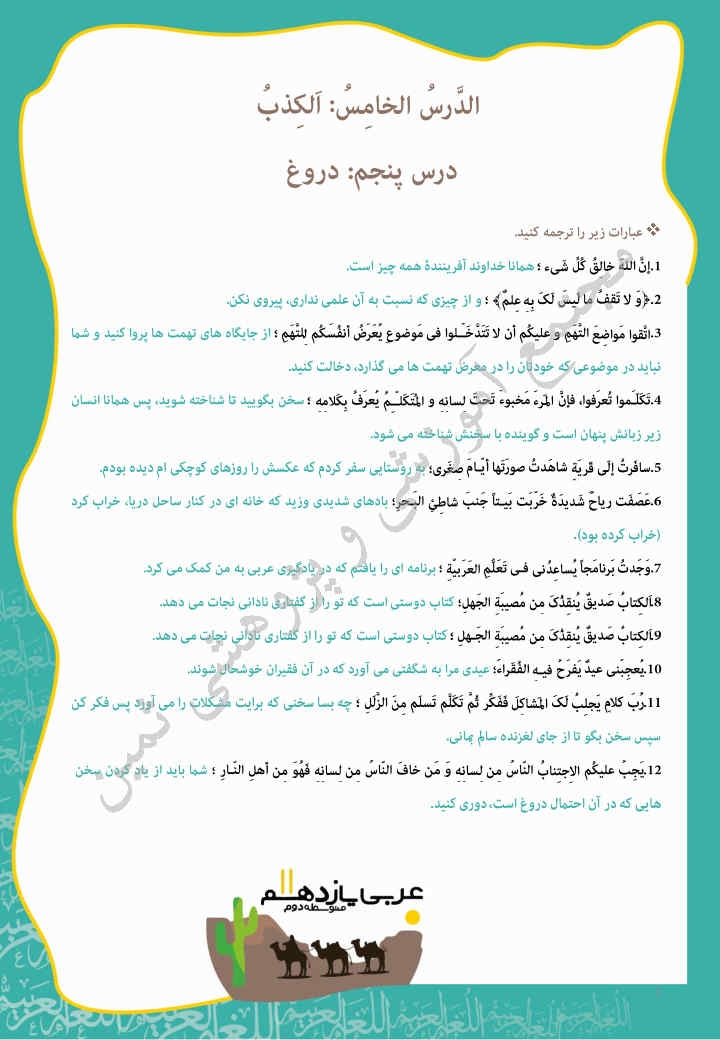 الدَّرسُ الخامِسُ: اَلکِذبُ
درس پنجم: دروغ
❖ عبارات زیر را ترجمه کنید.
1.إنَّ اللهَ خالِقُ کُلِّ شَیء ؛ همانا خداوند آفرینندهٔ همه چیز است.
2.﴿وَ لا تَقفُ ما لَیسَ لَکَ بِهِ عِلمٌ﴾ ؛ و از چیزی که نسبت به آن علمی نداری، پیروی نکن.
3.اتَّقوا مَواضِعَ التُّهَمِ و علیکُم أن لا تَتَدَخَّـلوا فی مَوضوعٍ یُعَرِّضُ أنفُسَکُم لِلتُّهَمِ ؛ از جایگاه های تهمت ها پروا کنید و شما
نباید در موضوعی که خودتان را در معرض تهمت ها می گذارد، دخالت کنید.
4.تَکَلَّـموا تُعرَفوا، فإنَّ المَرءَ مَخبوءٌ تَحتَ لِسانِهِ و المُتَکَلِّـمُ یُعرَفُ بِکَلامِهِ ؛ سخن بگویید تا شناخته شوید، پس همانا انسان
زیر زبانش پنهان است و گوینده با سخنش شناخته می شود.
5.سافَرتُ إلَی قَریَةٍ شاهَدتُ صورَتَها أیّـامَ صِغَری؛ به روستایی سفر کردم که عکسش را روزهای کوچکی ام دیده بودم.
6.عَصَفَت ریاحٌ شَدیدَةٌ خَرَّبَت بَیـتاً جَنبَ شاطِئِ البَـحرِ؛ بادهای شدیدی وزید که خانه ای در کنار ساحل دریا، خراب کرد
(خراب کرده بود).
7.وَجَدتُ بَرنامَجاً یُساعِدُنی فـی تَعَلُّمِ العَرَبیَّةِ ؛ برنامه ای را یافتم که در یادگیری عربی به من کمک می کرد.
8.اَلکِتابُ صَدیقٌ یُنقِذُکَ مِن مُصیبَةِ الجَهلِ؛ کتاب دوستی است که تو را از گفتاری نادانی نجات می دهد.
9.اَلکِتابُ صَدیقٌ یُنقِذُکَ مِن مُصیبَةِ الجَـهلِ ؛ کتاب دوستی است که تو را از گفتاری نادانی نجات می دهد.
10.یُعجِبُنی عیدٌ یَفرَحُ فیـهِ الفُقَراءُ؛ عیدی مرا به شگفتی می آورد که در آن فقیران خوشحال شوند.
11.رُبَّ کَلامٍ یَجلِبُ لَکَ المَشاکِلَ فَفَکِّر ثُمَّ تَکَلَّم تَسلَم مِنَ الزَّلَلِ ؛ چه بسا سخنی که برایت مشکلات را می آورد پس فکر کن
سپس سخن بگو تا از جای لغزنده سالم بمانی.
12.یَجِبُ علیکُم الاِجتِنابُ النّاسُ مِن لِسانِهِ وَ مَن خافَ النّاسُ مِن لِسانِهِ فَهُوَ مِن أهلِ النّـارِ ؛ شما باید از یاد کردن سخن
هایی که در آن احتمال دروغ است، دوری کنید.
مجتمع آموزشی و پژوهشی ثمین
عربی یازدهم
متوسطه دوم